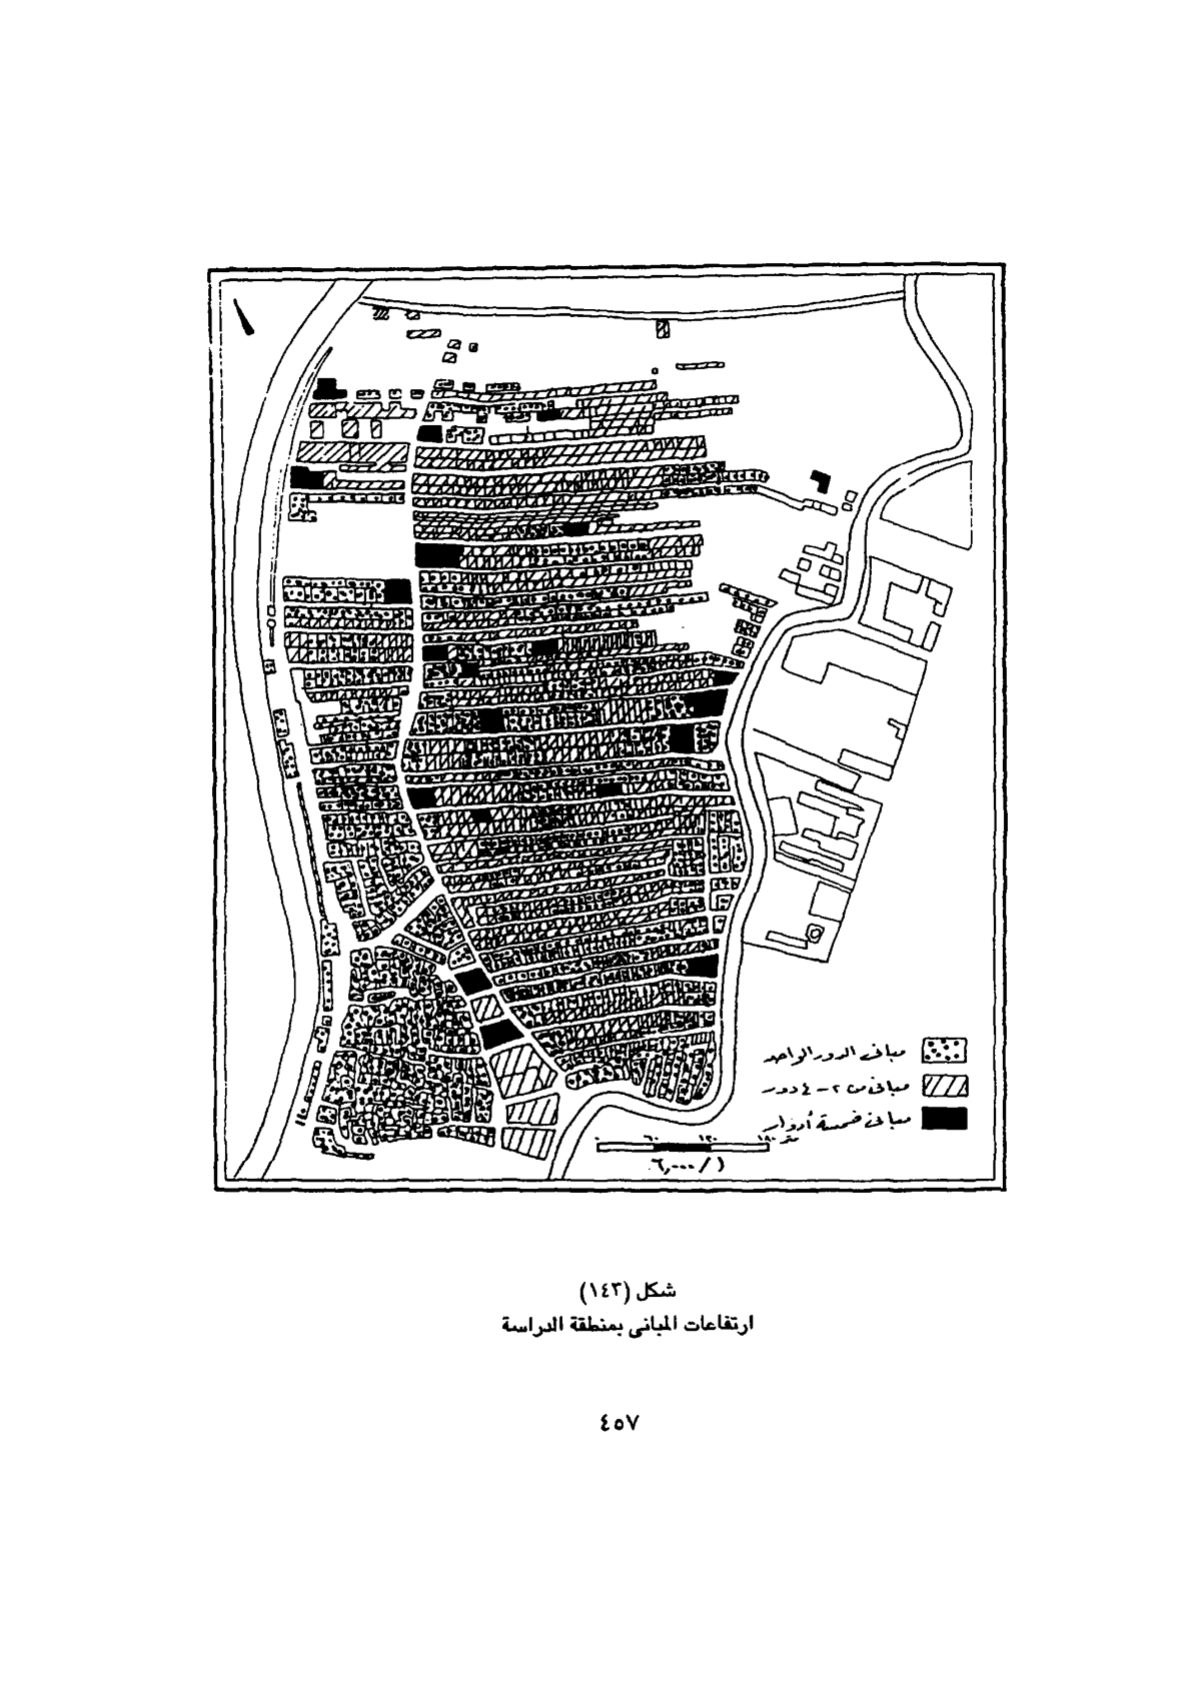 مبانى الدور الواحد
مبانى من ٢ - ٤ دور
مبانى خمسة أدوار
٠ ٦٠ ١٢٠ ١٨٠ متر
١ / ٦,٠٠٠
شكل (١٤٣)
ارتفاعات المبانى بمنطقة الدراسة
٤٥٧